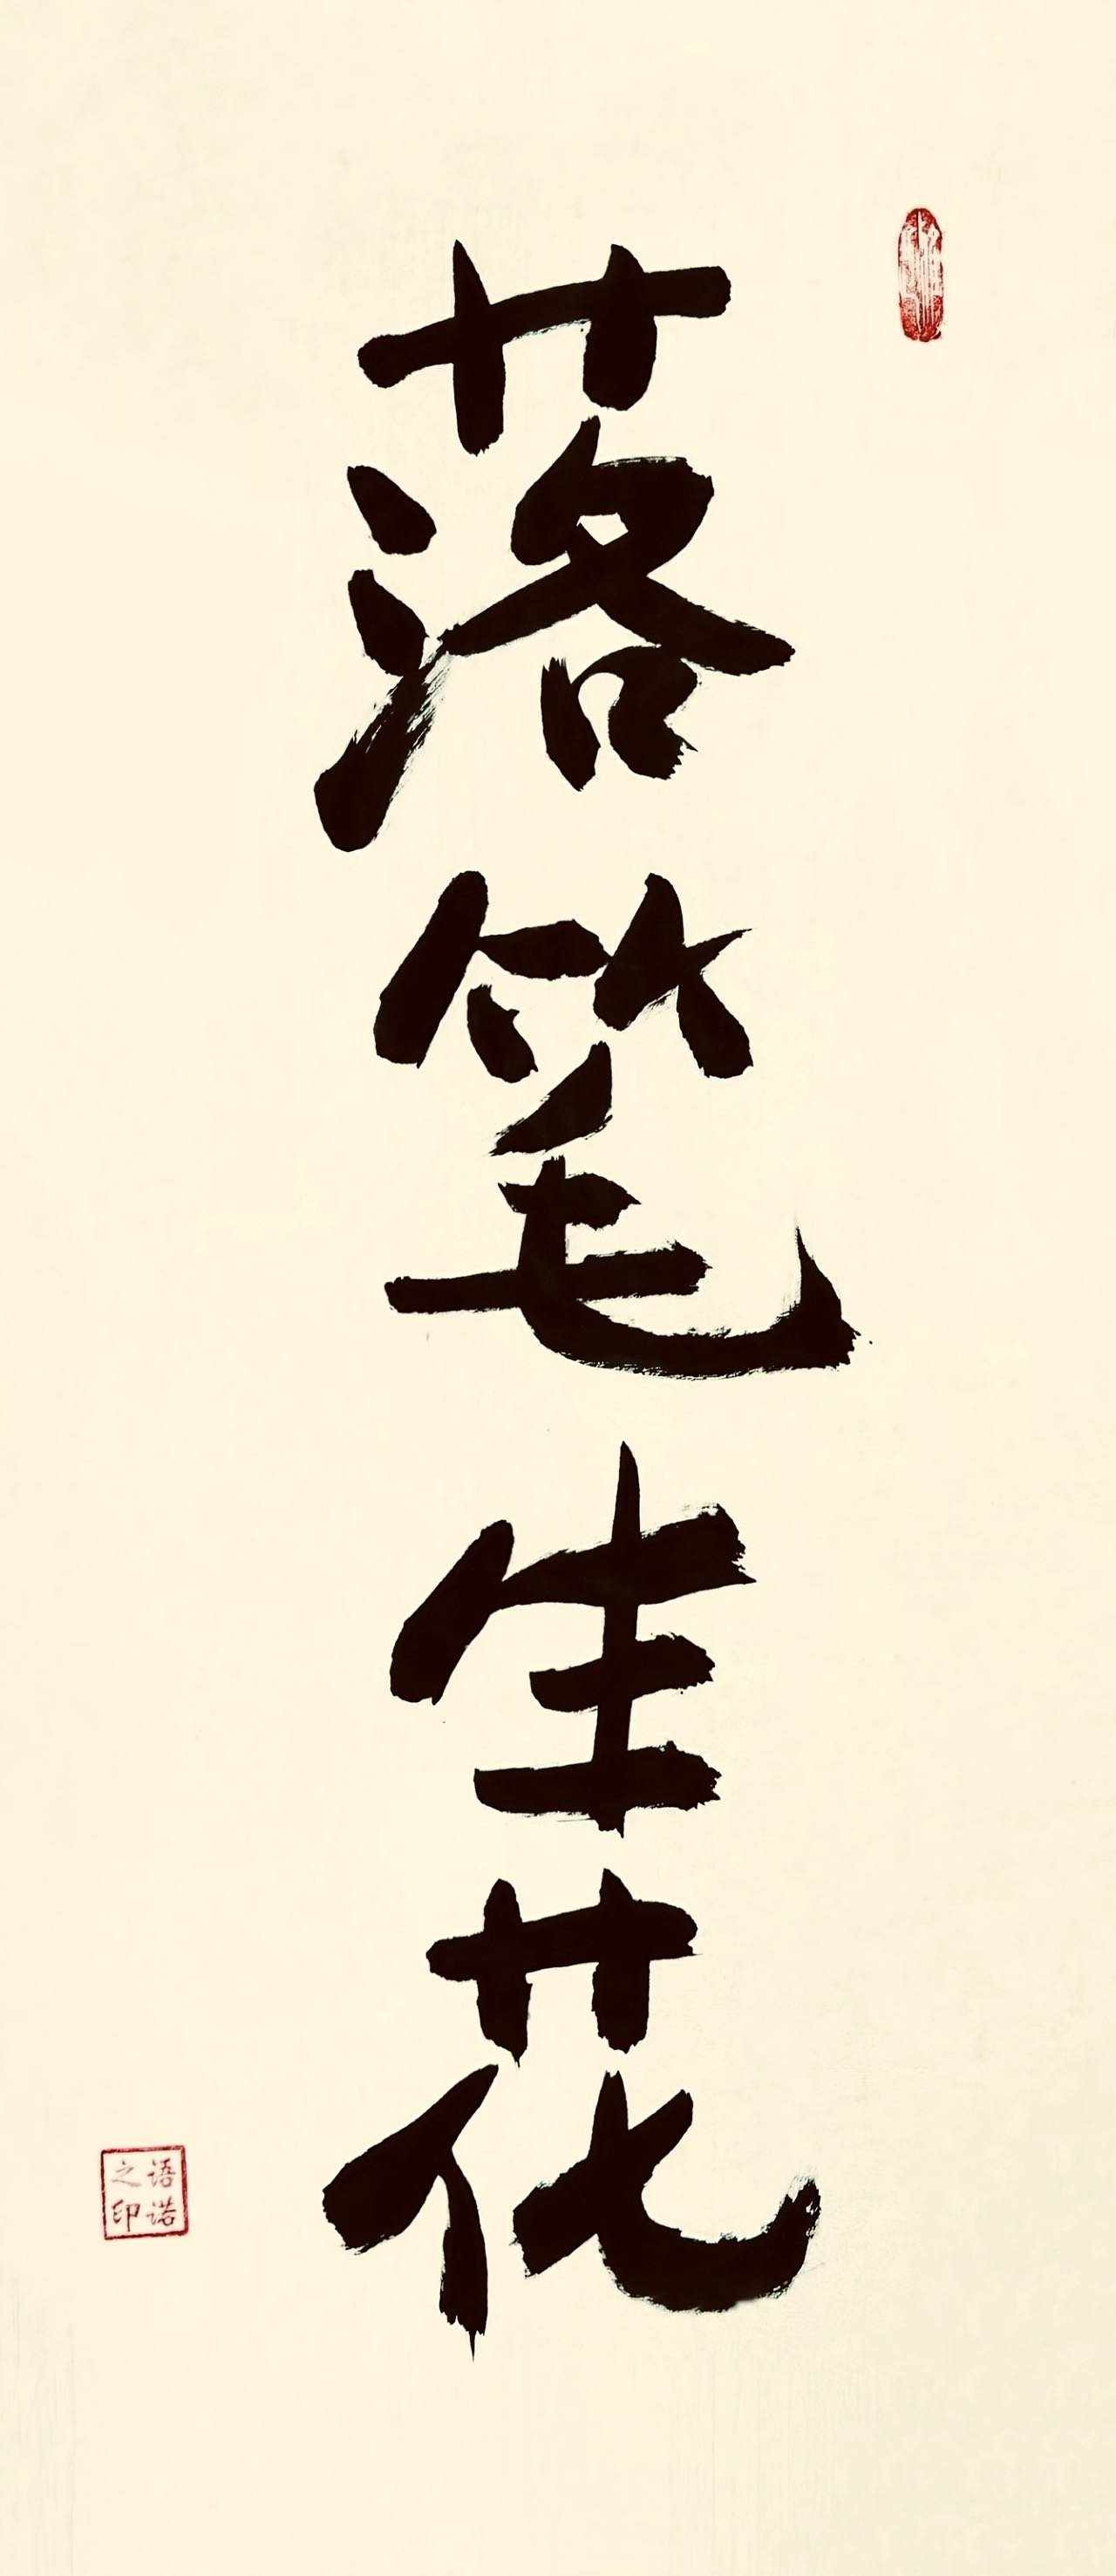 落笔生花
语诺之印